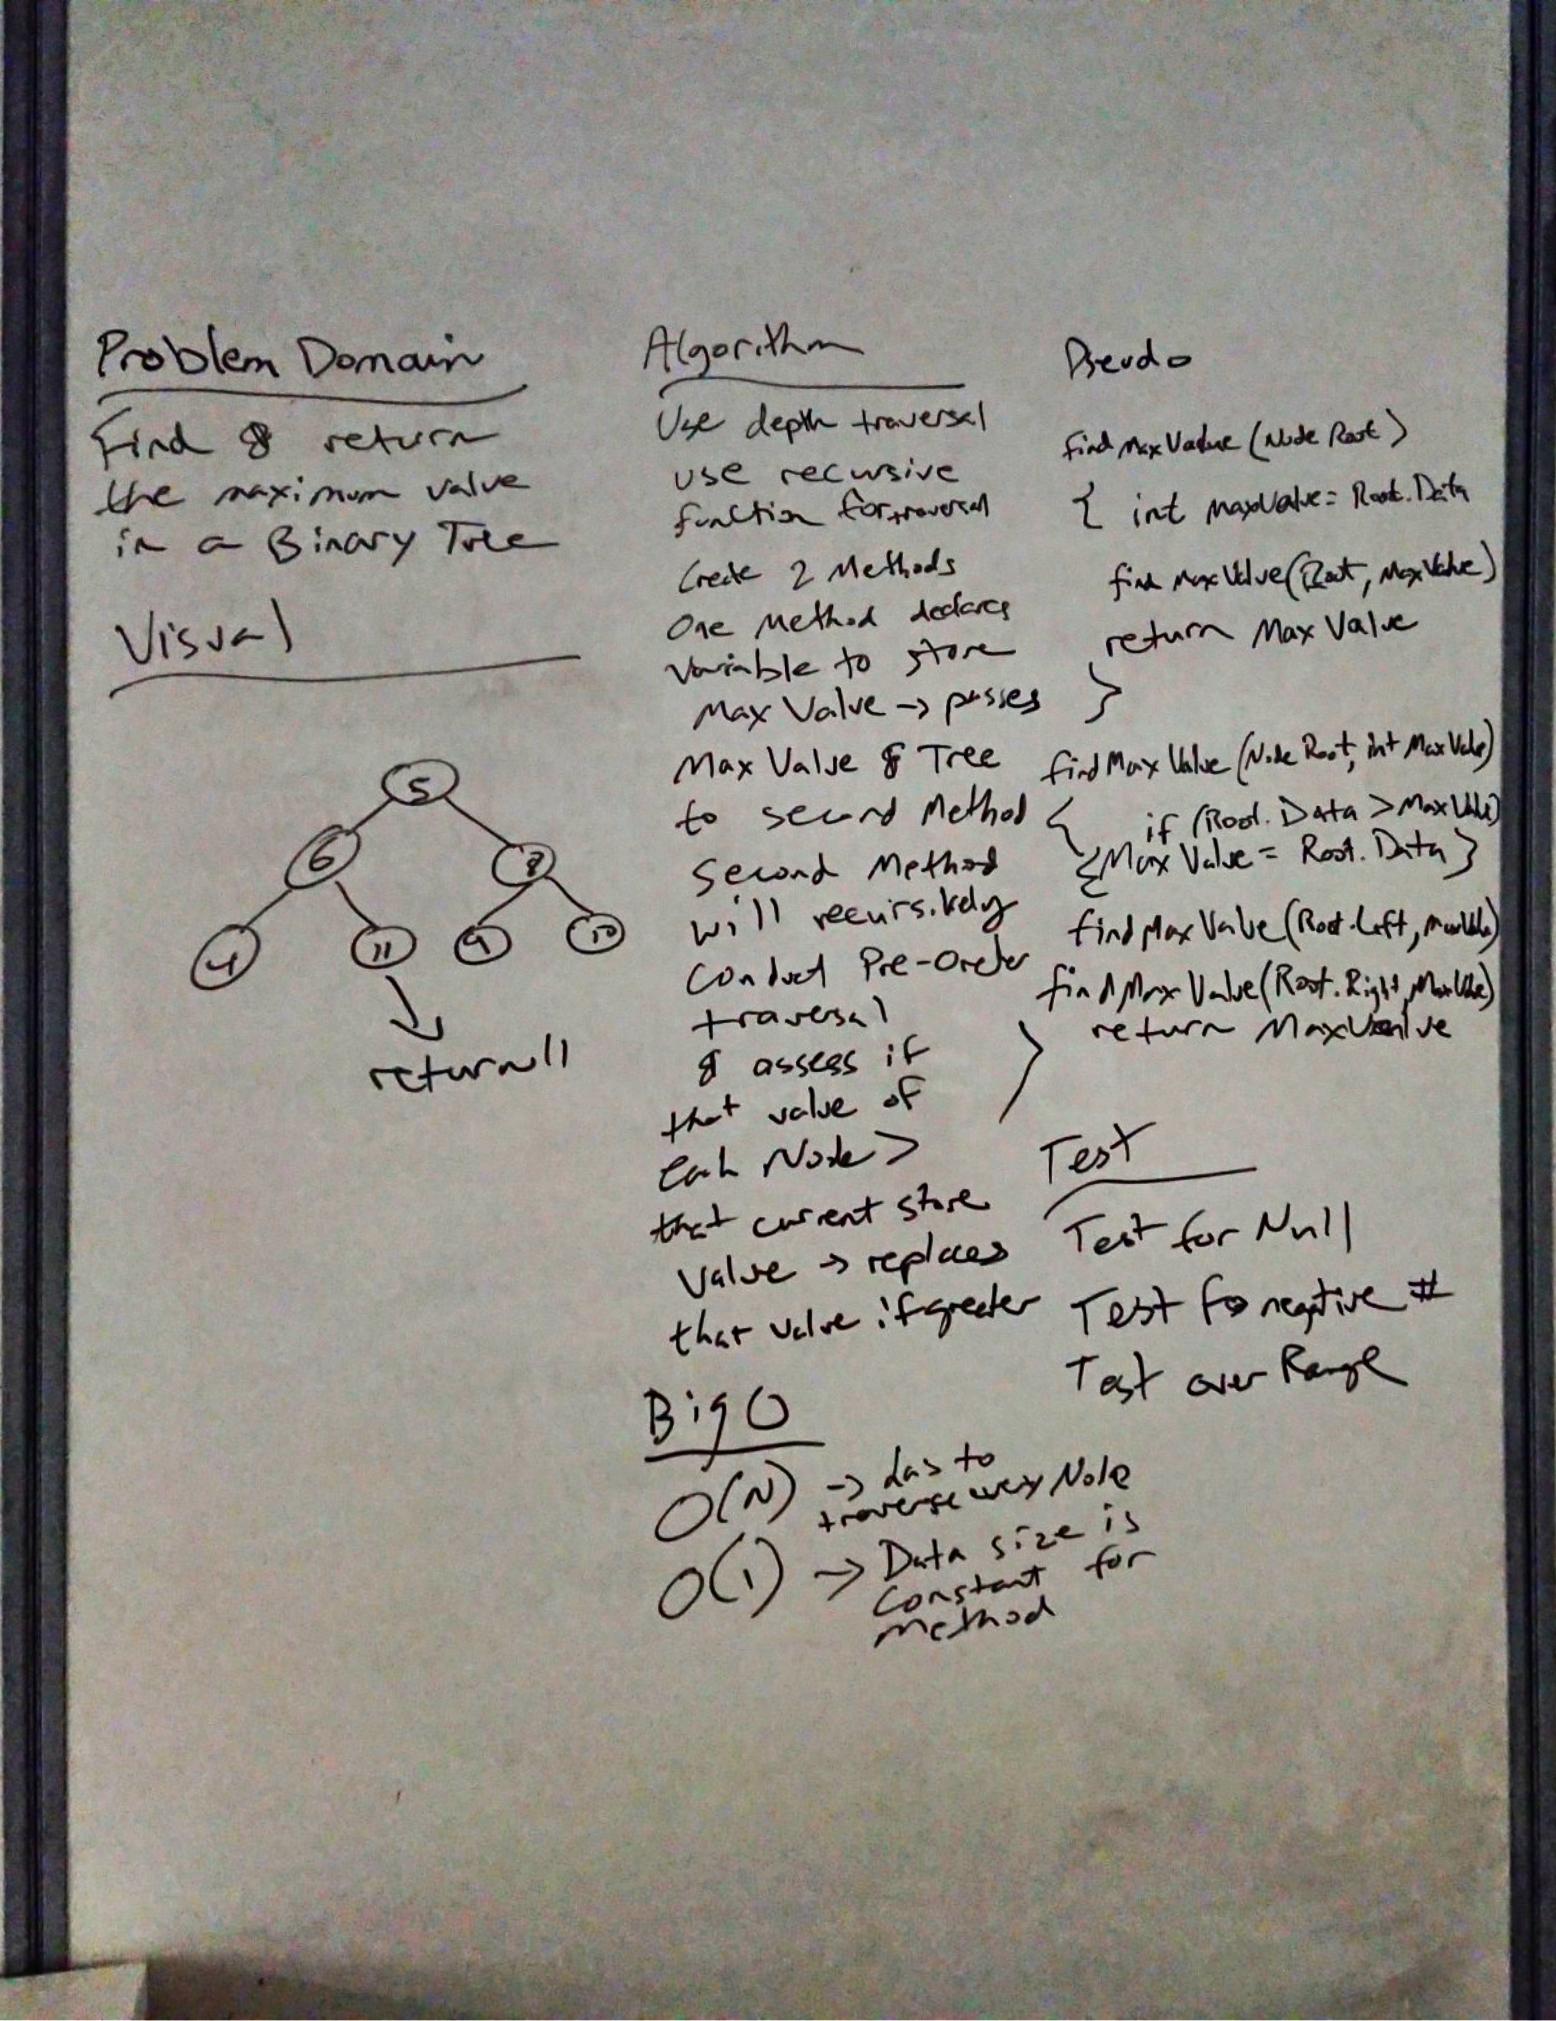 Problem Domain
Find & return
the maximum value
in a Binary Tree
Visual
5
6
4
11
9
10
returnull
Algorithm
Use depth traversal
use recursive
function for traversal
Create 2 Methods
One Method declares
Variable to store
Max Value -> passes
Max Value & Tree
to second Method
Second Method
will recursively
Conduct Pre-Order
traversal
& assess if
that value of
each Node >
that current store
Value -> replaces
that value if greater
Big O
O(N) -> has to
traverse every Node
O(1) -> Data size is
Constant for
Method
Pseudo
findMaxValue (Node Root)
{ int maxValue = Root.Data
findMaxValue(Root, MaxValue)
return Max Value
}
findMaxValue (Node Root, int MaxValue)
{ if (Root.Data > MaxValue)
{Max Value = Root.Data }
findMaxValue(Root.Left, maxValue)
findMaxValue(Root.Right, MaxValue)
return MaxValue
}
Test
Test for Null
Test for negative #
Test over Range